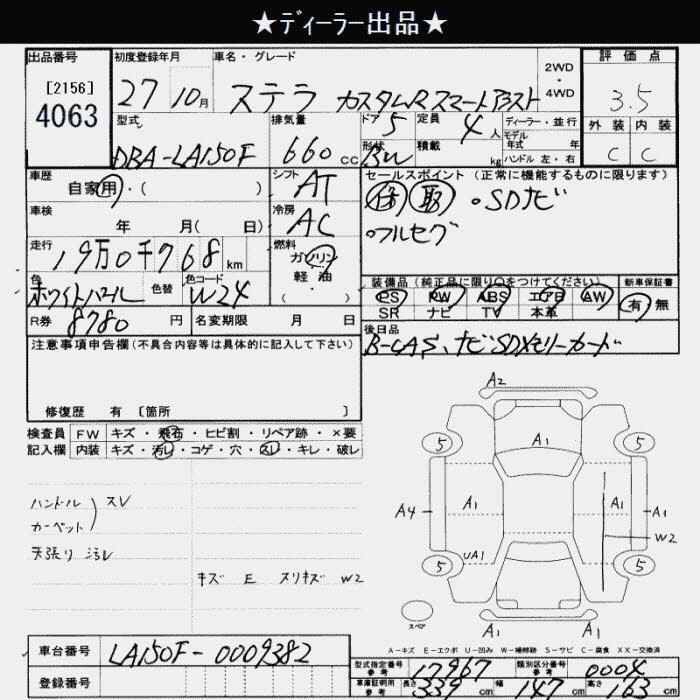 ★ディーラー出品★
出品番号
[2156]
4063
初度登録年月
27 10月
車名・グレード
ステラ カスタムRスマートアシスト
2WD
・
4WD
評価点
3.5
外装 内装
C C
型式
DBA-LA150F
排気量
660 cc
ドア 5
形状 BW
定員 4 人
積載 kg
ディーラー・並行
モデル
年式 年
ハンドル 左・右
車歴
自家用・( )
シフト AT
車検
年 月( 日)
冷房 AC
走行
19万0千768 km
燃料
ガソリン
軽・油
( )
色
ホワイトパール
色替
色コード
W24
R券 8780 円
名変期限 月 日
セールスポイント (正常に機能するものに限ります)
保 取 ・SDナビ
・フルセグ
装備品(純正品に限り○をつけてください)
PS PW ABS エアB AW
SR ナビ TV 本革
新車保証書
有 無
後日品
B-CAS、ナビSDメモリーカード
注意事項申告欄(不具合内容等は具体的に記入して下さい)
修復歴 有 〔箇所 〕
検査員 FW キズ・飛石・ヒビ割・リペア跡・×要
記入欄 内装 キズ・汚レ・コゲ・穴・スレ・キレ・破レ
ハンドル
カーペット
スレ
天張り 汚レ
キズ E スリキズ W2
A2
5 A1 5
A4 A1 A1 A1
W2
UA1
5 5
スペア
A1 A1
A-キズ E-エクボ U-凹み W-補修跡 S-サビ C-腐食 XX-交換済
車台番号 LA150F-0009382
登録番号
型式指定番号
参考
17967
類別区分番号
参考
0004
車庫証明用
参考
長さ 339 cm 幅 147 cm 高さ 163 cm